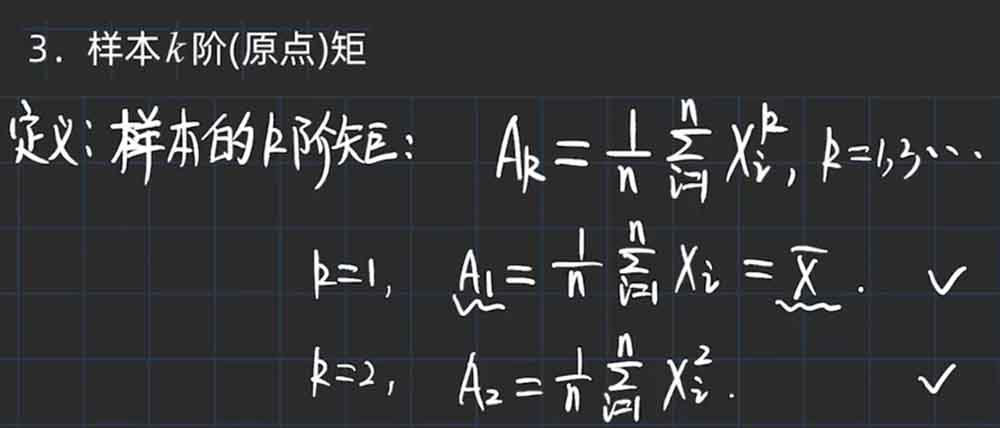 3. 样本k阶(原点)矩
定义: 样本的k阶矩: A_k = \frac{1}{n} \sum_{i=1}^{n} X_i^k, k=1,3⋯
k=1, A_1 = \frac{1}{n} \sum_{i=1}^{n} X_i = \overline{X}. ✓
k=2, A_2 = \frac{1}{n} \sum_{i=1}^{n} X_i^2. ✓